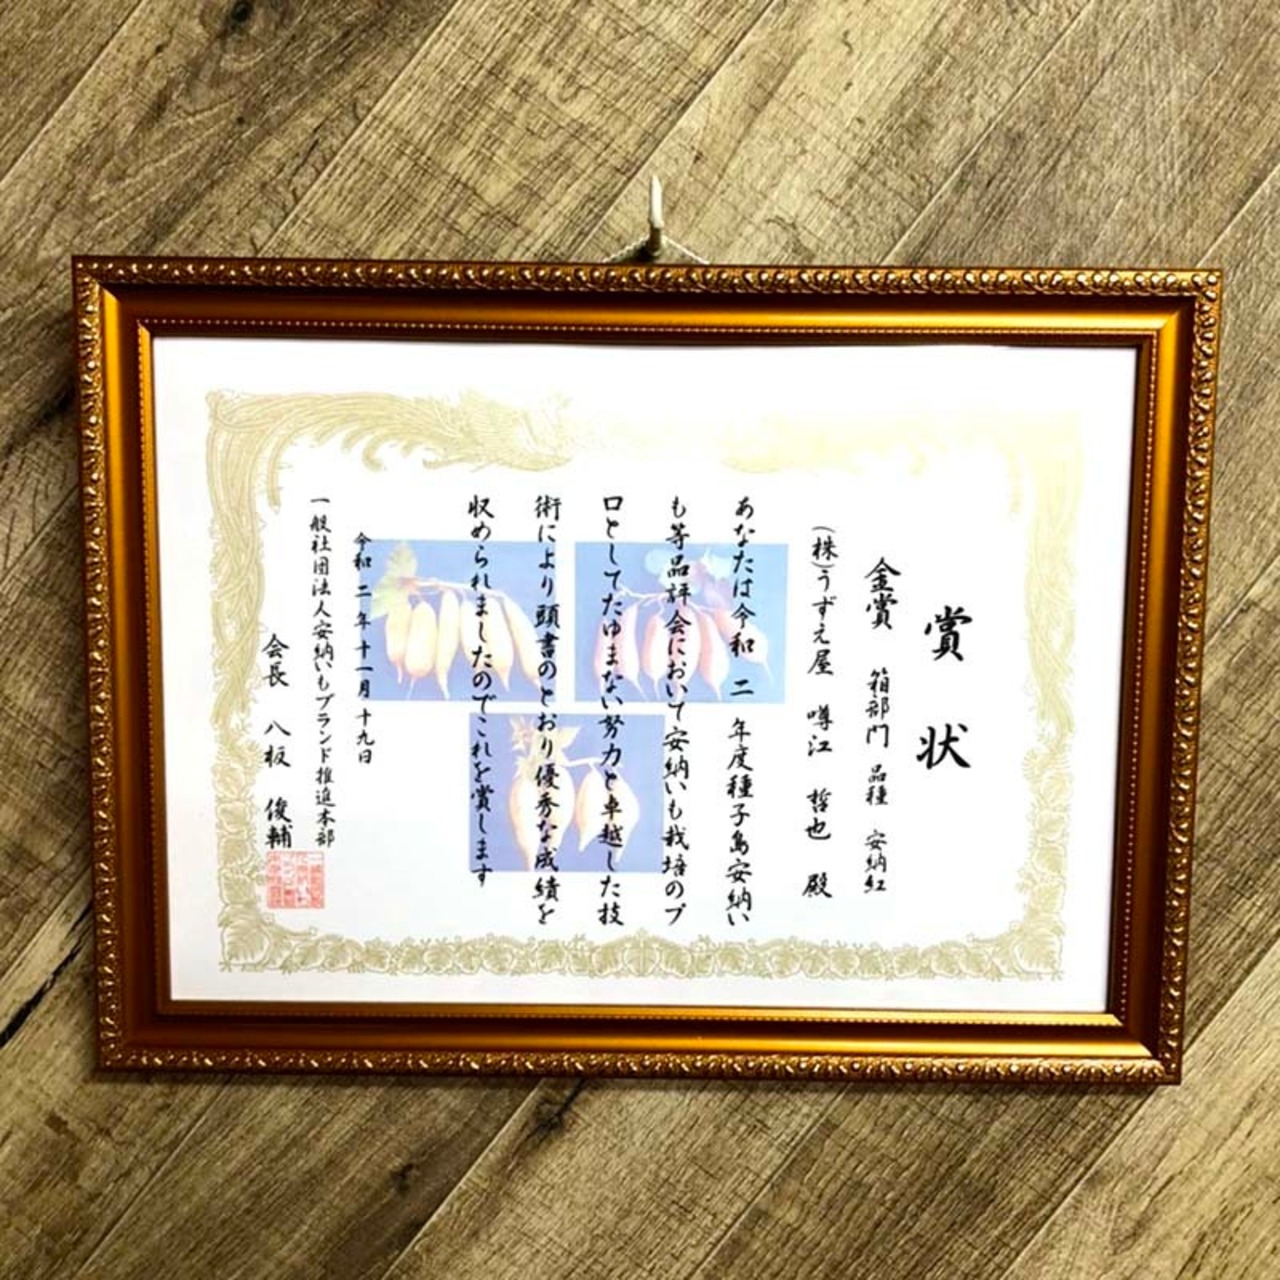 賞状
金賞 箱部門 品種 安納紅
(株)うずえ屋 噂江 哲也 殿
あなたは令和 二 年度種子島安納い
も等品評会において安納いも栽培のプ
ロとしてたゆまない努力と卓越した技
術により頭書のとおり優秀な成績を
収められましたのでこれを賞します
令和 二 年十一月 十九日
一般社団法人安納いもブランド推進本部
会長 八板 俊輔